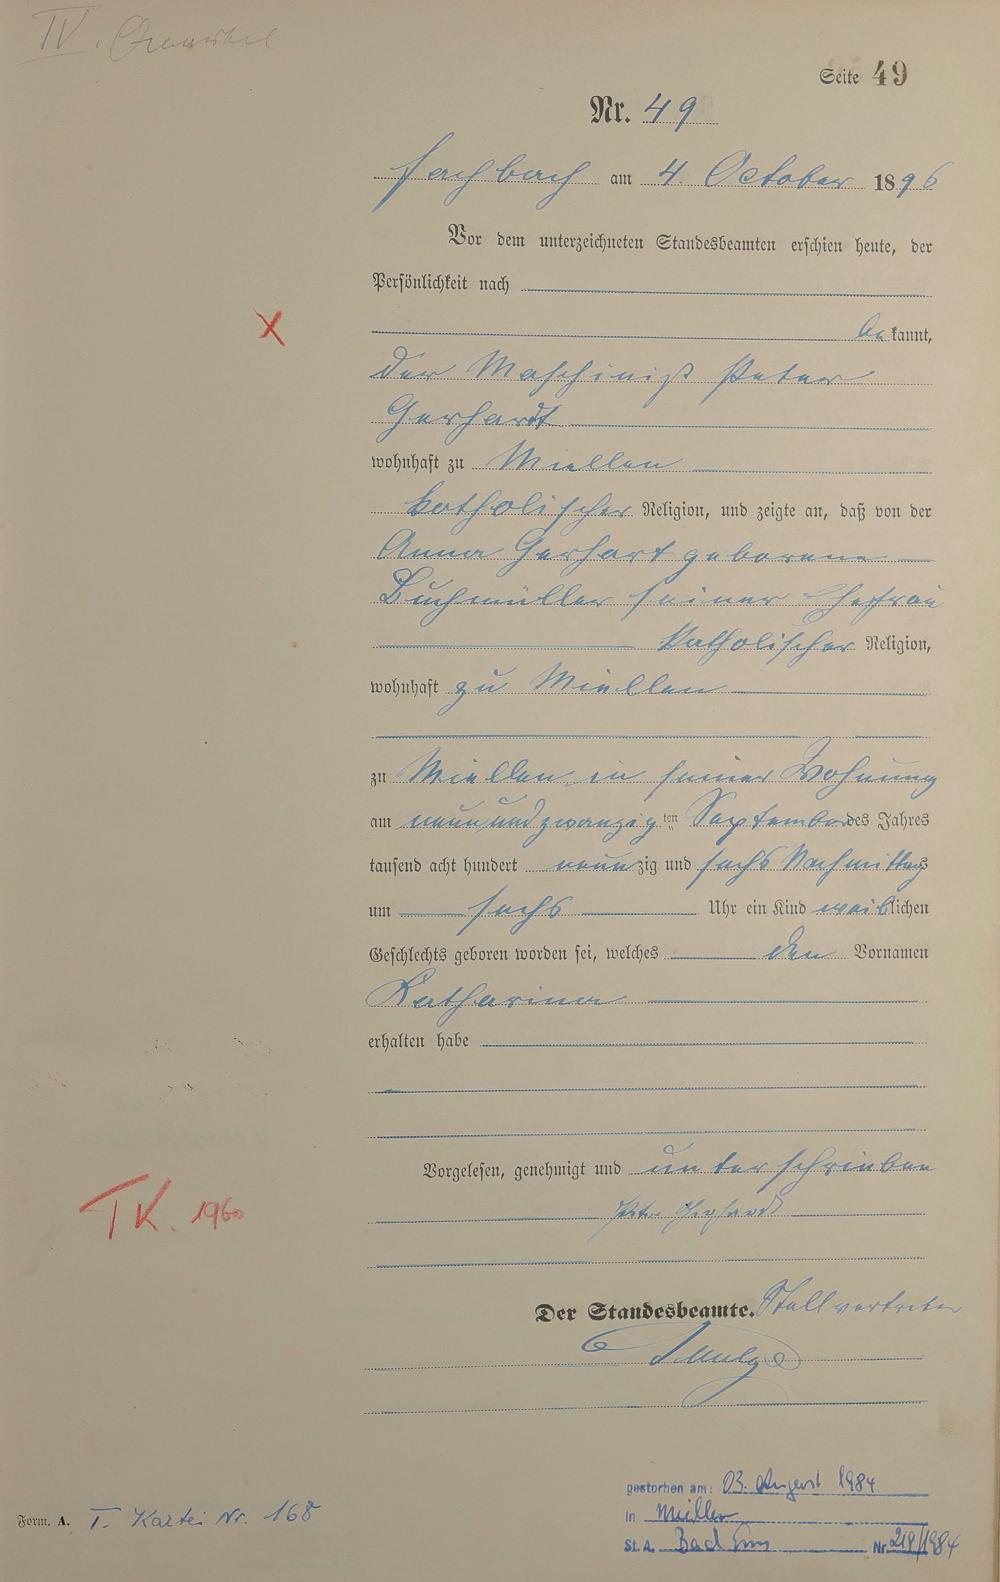 IV.
Seite 49
Nr. 49
Fachbach am 4. October 1896
Vor dem unterzeichneten Standesbeamten erschien heute, der
Persönlichkeit nach
bekannt,
der Maschinist Peter
Gerhardt
wohnhaft zu Miellen
katholischer Religion, und zeigte an, daß von der
Anna Gerhart geborene
Buchmüller seiner Ehefrau
katholischer Religion,
wohnhaft zu Miellen
zu Miellen in seiner Wohnung
am neunundzwanzigten September des Jahres
tausend acht hundert neunzig und sechs Nachmittags
um sechs Uhr ein Kind weiblichen
Geschlechts geboren worden sei, welches den Vornamen
Katharina
erhalten habe
Vorgelesen, genehmigt und unterschrieben
Peter Gerhardt
TK. 1960
Der Standesbeamte. Stellvertreter
gestorben am: 03. August 1984
in Miellen
St. A. Bad Ems Nr. 218/1984
Form. A. T. Kartei Nr. 168